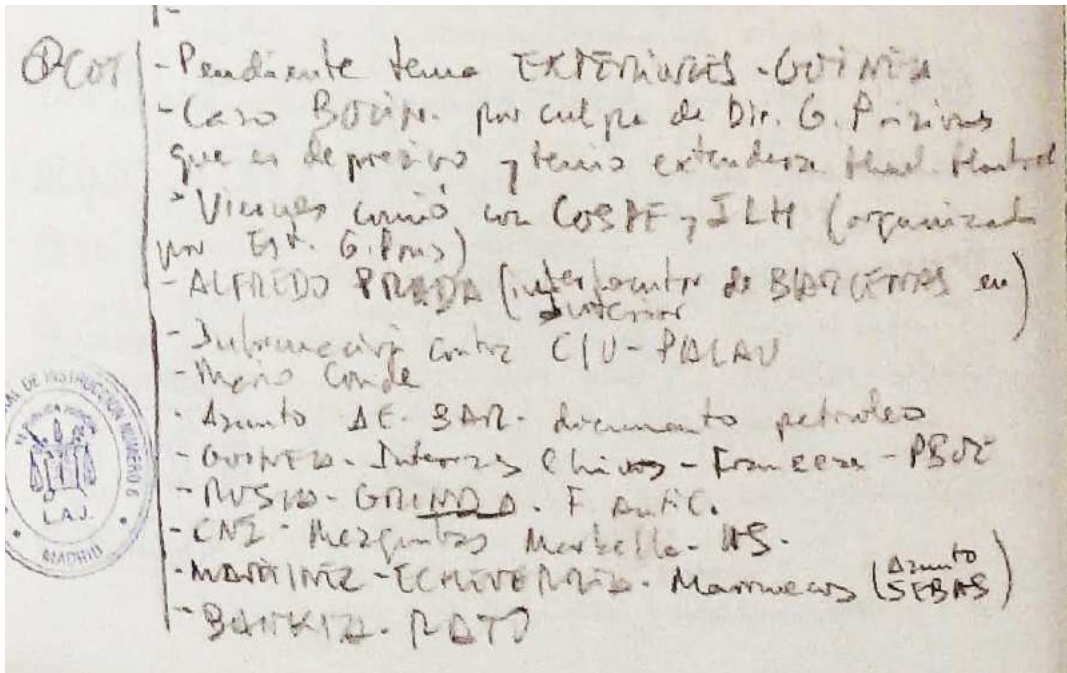 COT
- Pendiente tema EXTERIORES - GUINEA
- Caso BOLIN. por culpa de Dir. G. Prisiones
que es depresivo y temio extendera
* Viernes comió con COSPE y ILH (organizada
por Est. G. Pons)
- ALFREDO PRADA (interlocutor de BARCENAS en
Interior)
- Información contra CIU - PALAU
- Mario Conde
- Asunto AE. SAR. documento petroleo
- GUINEA - Intereses Chinos - Franceses - PSOE
- RUSIA - GRINDA. F. Anti C.
- CNI - Mezquitas Marbella - HS.
- MARTINEZ - ECHEVERRIA. Marruecos (Asunto
SEBAS)
- BANKIA. RATO
DE INSTRUCCION NUMERO 6
L.A.J.
MADRID